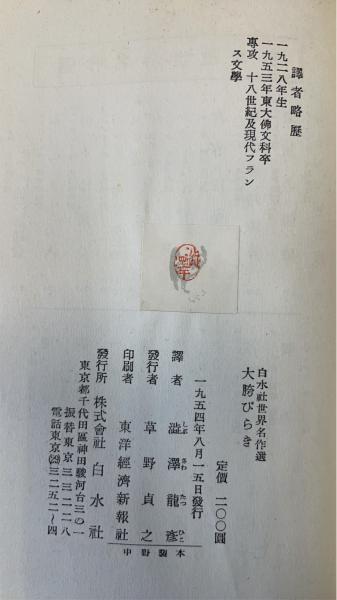 譯者略歷
一九二八年生
一九五三年東大佛文科卒
專攻 十八世紀及現代フラン
ス文學
白水社世界名作選
大胯びらき
定價 二〇〇圓
一九五四年八月一五日發行
譯者 澁澤龍彥
しぶ さわ たつ ひこ
發行者 草野貞之
印刷者 東洋經濟新報社
發行所 株式會社 白水社
東京都千代田區神田駿河台三の一
振替東京三三二二八
電話東京(29)三二五二~四
本製野中